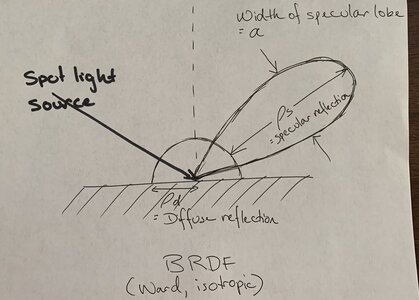 Width of specular lobe
= a
Spot light
source
ρs
= specular reflection
ρd
= Diffuse reflection
BRDF
(Ward, isotropic)